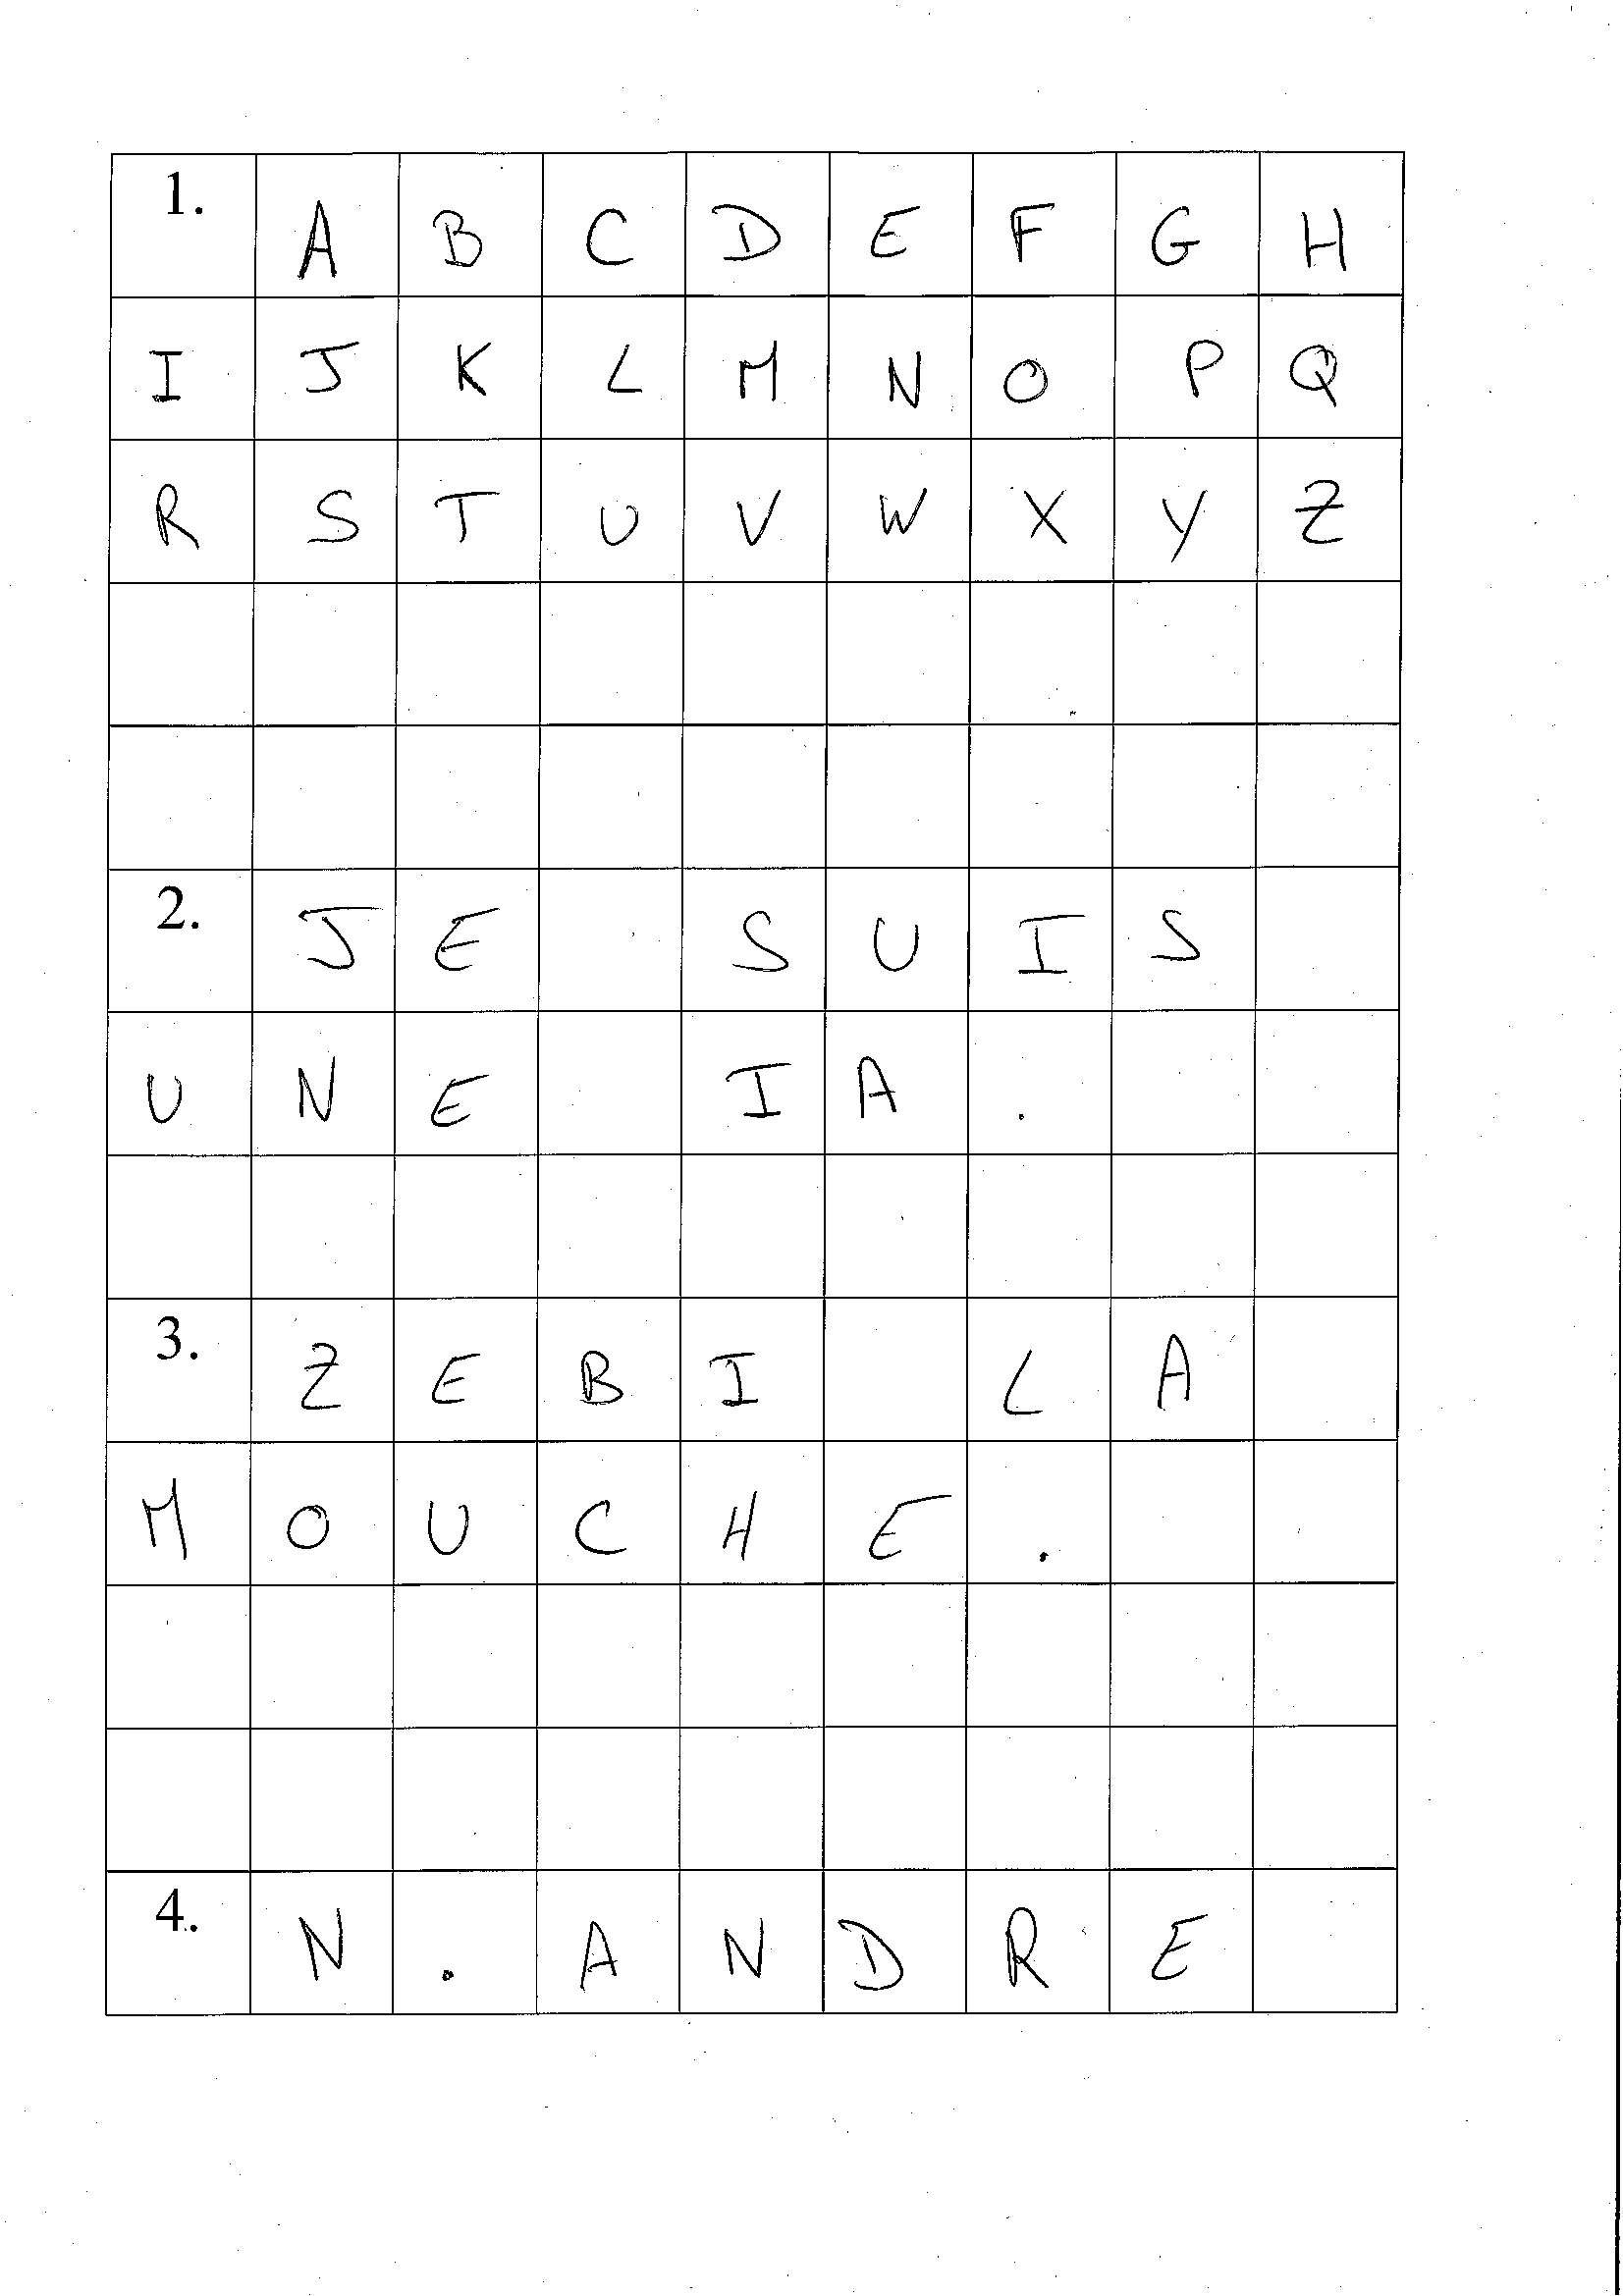 1. A B C D E F G H
I J K L M N O P Q
R S T U V W X Y Z
2. J E S U I S
U N E I A .
3. Z E B I L A
M O U C H E .
4. N . A N D R E